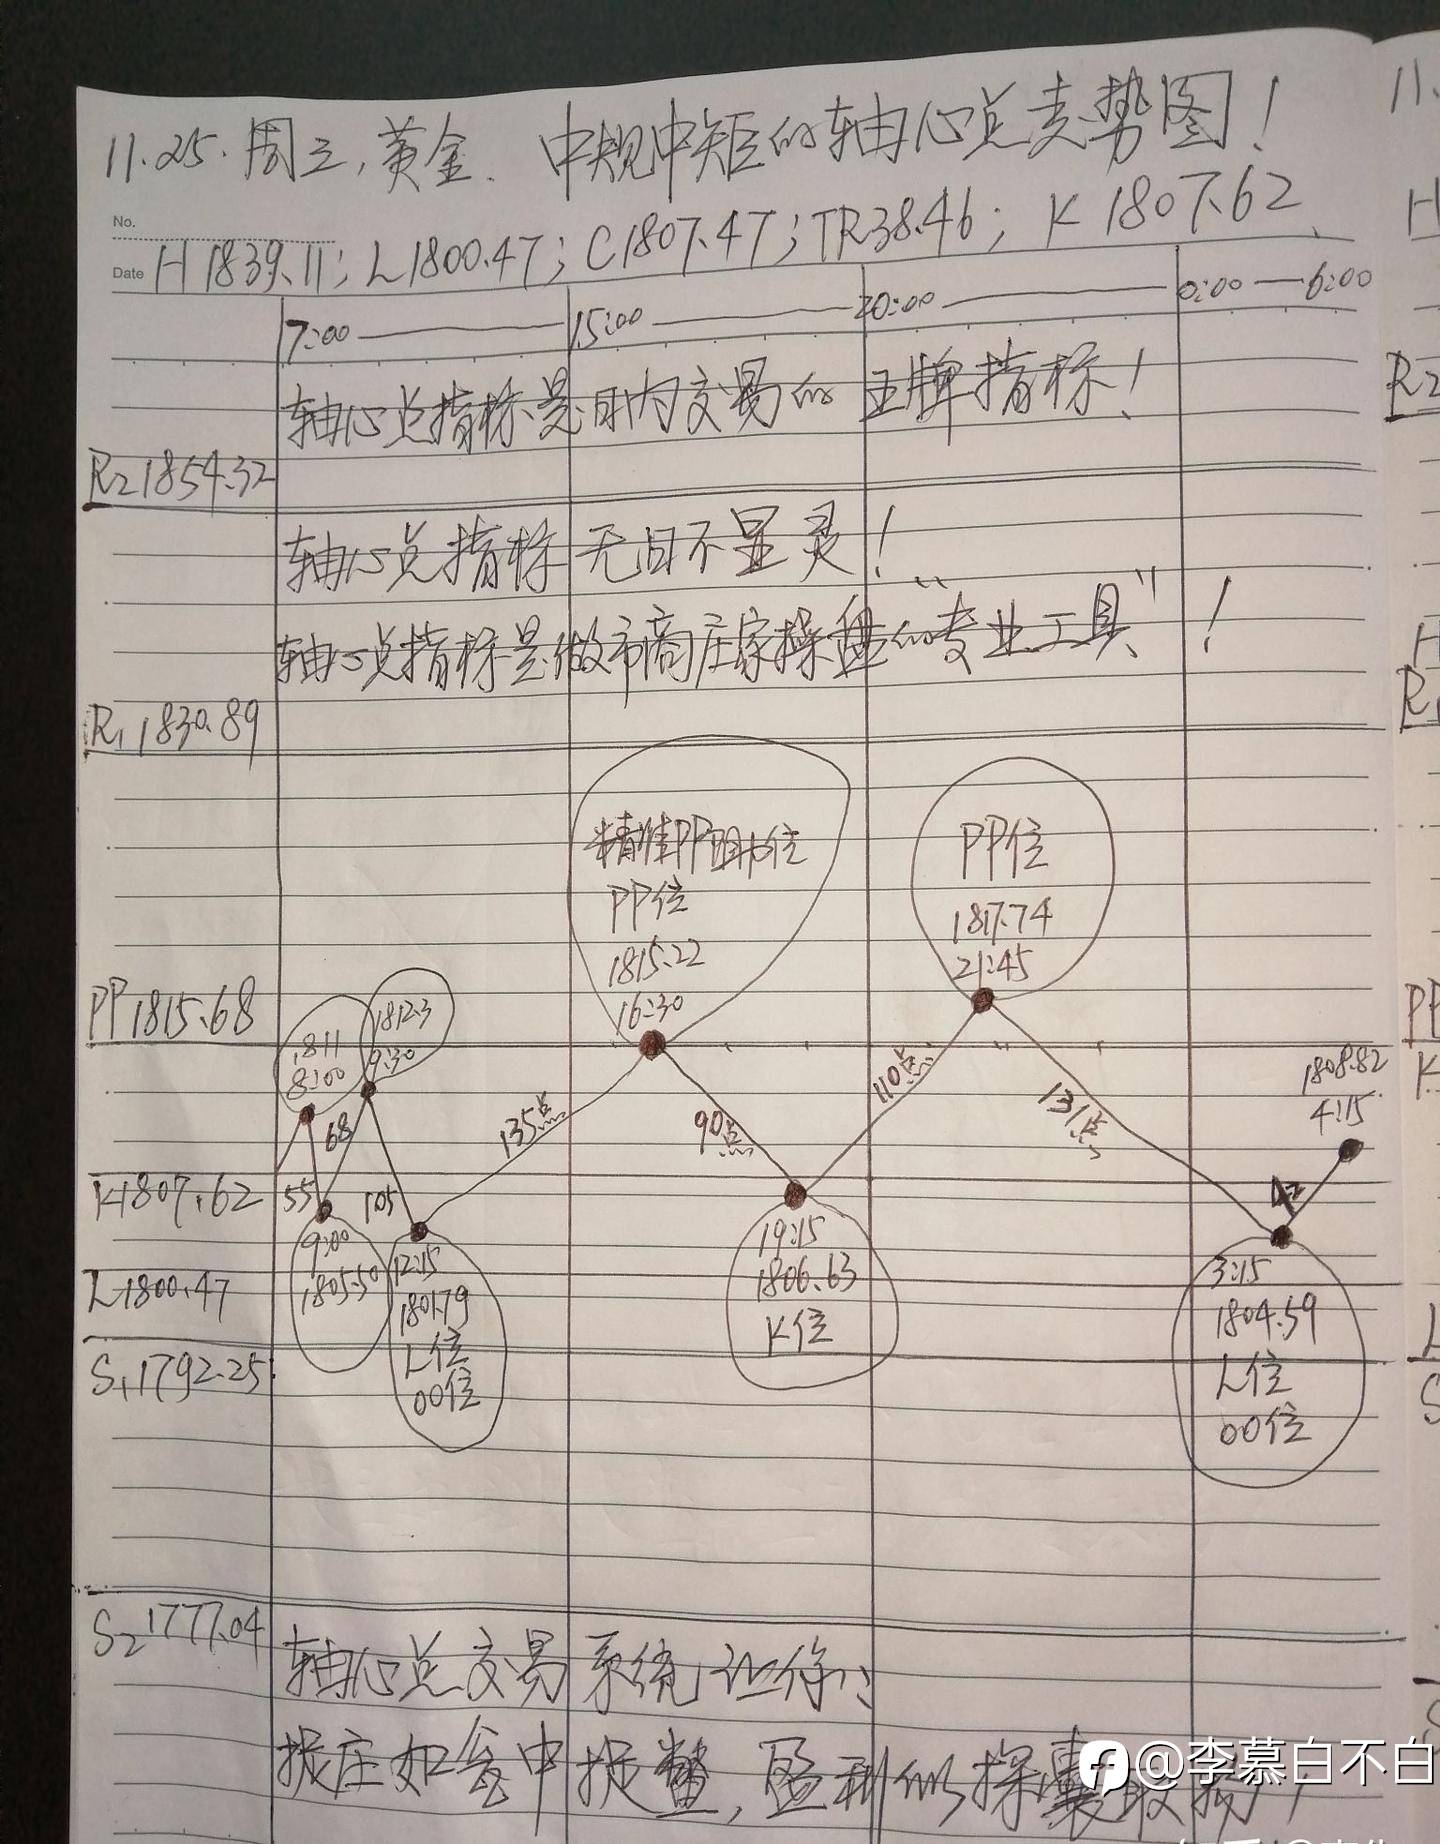 11.25.周三,黄金. 中规中矩的轴心点走势图!
No.
Date H 1839.11; L1800.47; C1807.47; TR38.46; K 1807.62
7:00 15:00 20:00 0:00 — 6:00
轴心点指标是日内交易的王牌指标!
R2 1854.32
轴心点指标无日不显灵!
轴心点指标是做市商庄家操盘的“专业工具”!
R1 1830.89
精准PP阻力位
PP位
1815.22
16:30
PP位
1817.74
21:45
PP1815.68
1811
8:00
1812.3
9:30
68
135点
90点
110点
131点
1808.82
4:15
K1807.62
55
105
42
9:00
1805.50
12:15
1801.79
L位
00位
19:15
1806.63
K位
3:15
1804.59
L位
00位
L1800.47
S1 1792.25
S2 1777.04
轴心点交易系统让你:
捉庄如瓮中捉鳖,盈利似探囊取物!
@李慕白不白
11.
R2
H
R1
PP
K
L
S